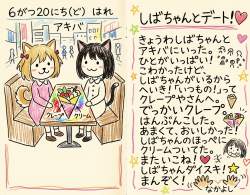 6がつ20にち(ど) はれ
アキバ
クレープ クリーム
しばちゃんとデート!
きょうわしばちゃんと
アキバにいった。
ひとがいっぱい!
こわかったけど、
しばちゃんがいるから
へいき!「いつもの!」って
クレープやさんへ。
でっかいクレープを
はんぶんこした。
あまくて、おいしかった!
しばちゃんのほっぺに
クリームついてた。
またいこね!
しばちゃんダイスキ!
まんぞく!
なかよし